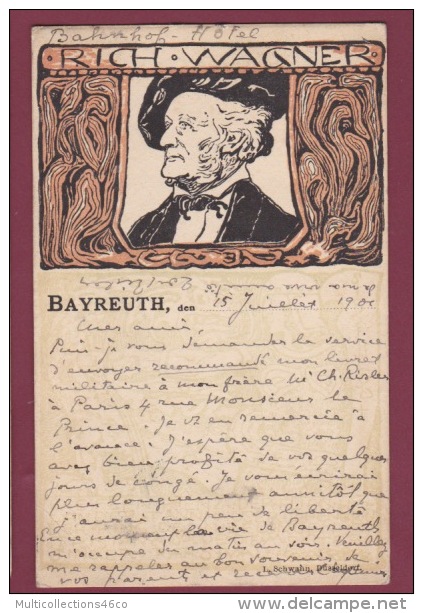 Bahnhof - Hôtel
RICH · WAGNER
BAYREUTH, den 15 Juillet 190
Mes amis,
Puis-je vous demander le service
d'envoyer recommandé mon livret
militaire à mon frère Mr Ch. Risler
à Paris 4 rue Monsieur le
Prince. Je vs en remercie à
l'avance. J'espère que vous
avez bien profité de vos quelques
jours de congé. Je vous écrirai
plus longuement aussitôt que
j'aurai un peu de liberté
En ce moment la vie de Bayreuth
m'occupe du matin au soir. Veuillez
me rappeler au bon souvenir de
vos parents et
L. Schwann, Düsseldorf.
Multicollections46co
http://www.delcampe.net